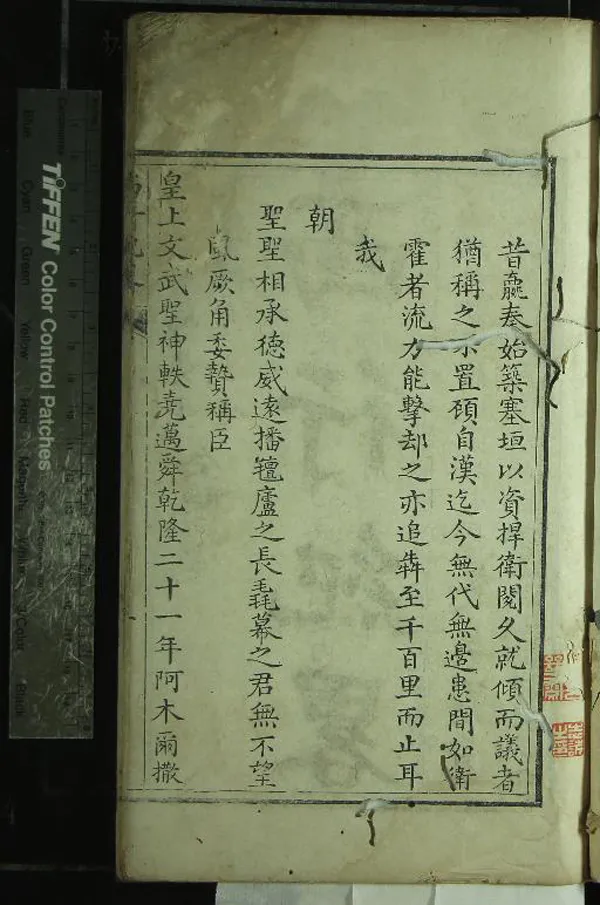 昔嬴秦始築塞垣以資捍衛閱久就傾而議者
猶稱之不置顧自漢迄今無代無邊患間如衛
霍者流力能擊却之亦追奔至千百里而止耳
我
朝
聖聖相承德威遠播氊廬之長毳幕之君無不望
風厥角委贄稱臣
皇上文武聖神軼堯邁舜乾隆二十一年阿木爾撒
TIFFEN Color Control Patches
Blue
Cyan
Green
Yellow
Red
Magenta
Black